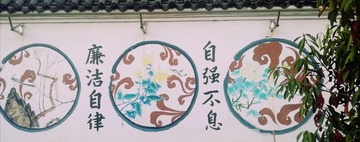 廉洁自律
自强不息